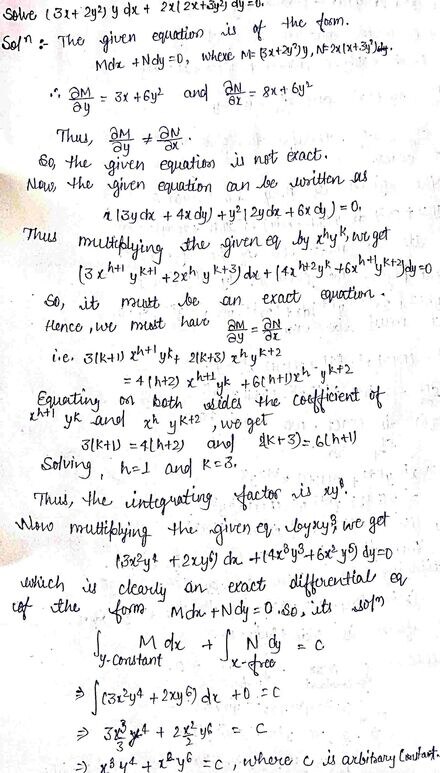 Solve (3x+2y²) y dx + 2x(2x+3y²) dy=0.
Solⁿ :- The given equation is of the form.
Mdx + Ndy = 0, where M=(3x+2y²)y, N=2x(x+3y²)dy.
∴ ∂M/∂y = 3x + 6y² and ∂N/∂x = 8x + 6y²
Thus, ∂M/∂y ≠ ∂N/∂x.
So, the given equation is not exact.
Now, the given equation can be written as
x(3ydx + 4xdy) + y²(2ydx + 6xdy) = 0.
Thus multiplying the given eq by xʰyᵏ, we get
(3x^{h+1} y^{k+1} + 2x^h y^{k+3}) dx + (4x^{h+2} y^k + 6x^{h+1} y^{k+2}) dy=0
So, it must be an exact equation.
Hence, we must have ∂M/∂y = ∂N/∂x.
i.e. 3(k+1) x^{h+1} y^k + 2(k+3) x^h y^{k+2}
= 4(h+2) x^{h+1} y^k + 6(h+1) x^h y^{k+2}
Equating on both sides the coefficient of
x^{h+1} y^k and x^h y^{k+2}, we get
3(k+1) = 4(h+2) and 2(k+3) = 6(h+1)
Solving, h=1 and k=3.
Thus, the integrating factor is xy³.
Now multiplying the given eq. by xy³, we get
(3x²y⁴ + 2xy⁶) dx + (4x³y³ + 6x²y⁵) dy=0
which is clearly an exact differential eq
of the form Mdx + Ndy = 0. So, its solⁿ
∫_{y-constant} M dx + ∫_{x-free} N dy = c
⇒ ∫(3x²y⁴ + 2xy⁶) dx + 0 = c
⇒ 3x³/3 y⁴ + 2x²/2 y⁶ = c
⇒ x³y⁴ + x²y⁶ = c, where c is arbitrary constant.